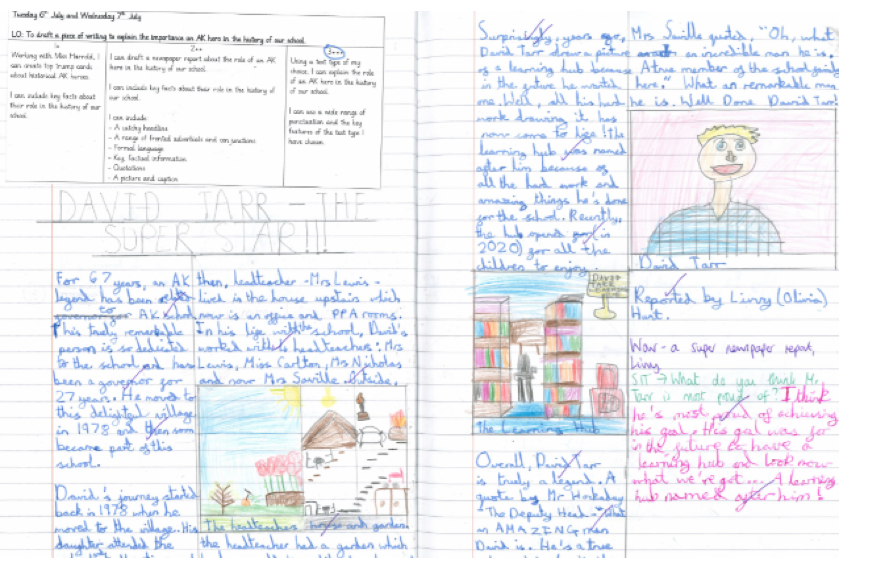 Tuesday 6th July and Wednesday 7th July
LO: To draft a piece of writing to explain the importance an AK hero in the history of our school.
1+
Working with Miss Herrold, I
can create top trump cards
about historical AK heroes.
I can include key facts about
their role in the history of our
school.
2++
I can draft a newspaper report about the role of an AK
hero in the history of our school.
I can include key facts about their role in the history of
our school.
I can include:
- A catchy headline
- A range of fronted adverbials and conjunctions
- Formal language
- Key, factual information
- Quotations
- A picture and caption
3+++
Using a text type of my
choice, I can explain the role
of an AK hero in the history
of our school.
I can use a wide range of
punctuation and the key
features of the text type I
have chosen.
DAVID TARR - THE
SUPER STAR!!!
For 67 years, an AK
legend has been
to AK school
This truly remarkable
person is so dedicated
to the school and has
been a governor for
27 years. He moved to
this delighted village
in 1978 and then soon
became part of this
school.
David's journey started
back in 1978 when he
moved to the village. His
daughter attended the
then, headteacher - Mrs Lewis -
lived in the house upstairs which
now is an office and PPA rooms.
In his life with the school, David's
worked with 4 headteachers: Mrs
Lewis, Miss Carlton, Mrs Nicholas
and now Mrs Saville. Outside,
The headteachers house and garden
the headteacher had a garden which
Surprisingly, years ago,
David Tarr drew a picture
of a learning hub because
in the future he wanted
one. Well, all his hard
work drawing, it has
now come to life! The
learning hub was named
after him because of
all the hard work and
amazing things he's done
for the school. Recently,
the hub opened (in
2020) for all the
children to enjoy.
DAVID
TARR
The Learning Hub
Overall, David Tarr
is truly a legend. A
quote by Mr Horkaday
- The Deputy Head - "What
an AMAZING man
David is. He's a true
Mrs Saville quoted, "Oh, what
an incredible man he is.
A true member of the school family
here." What an remarkable man
he is. Well Done David Tarr!
David Tarr
Reported by Livvy (Olivia)
Hunt.
Wow - a super newspaper report,
Livvy
SIT → What do you think Mr
Tarr is most proud of? I think
he's most proud of achieving
his goal. His goal was for
in the future to have a
learning hub and look now
what we've got... A learning
hub named after him!